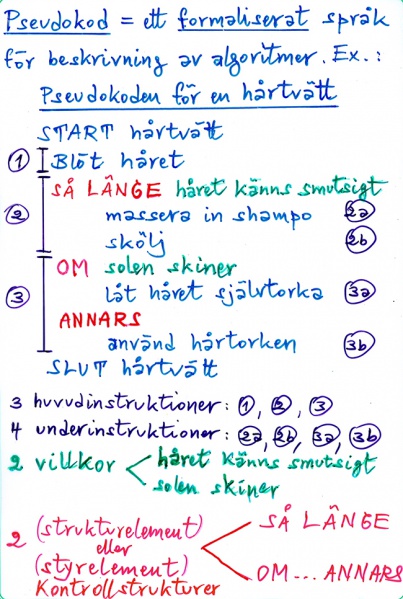 Pseudokod = ett formaliserat språk
för beskrivning av algoritmer. Ex.:
Pseudokoden för en hårtvätt
START hårtvätt
① Blöt håret
SÅ LÄNGE håret känns smutsigt
② massera in shampo 2a
skölj 2b
OM solen skiner
③ låt håret självtorka 3a
ANNARS
använd hårtorken 3b
SLUT hårtvätt
3 huvudinstruktioner: ①, ②, ③
4 underinstruktioner: 2a, 2b, 3a, 3b
2 villkor håret känns smutsigt
solen skiner
2 (strukturelement) SÅ LÄNGE
eller
(styrelement) OM... ANNARS
Kontrollstrukturer